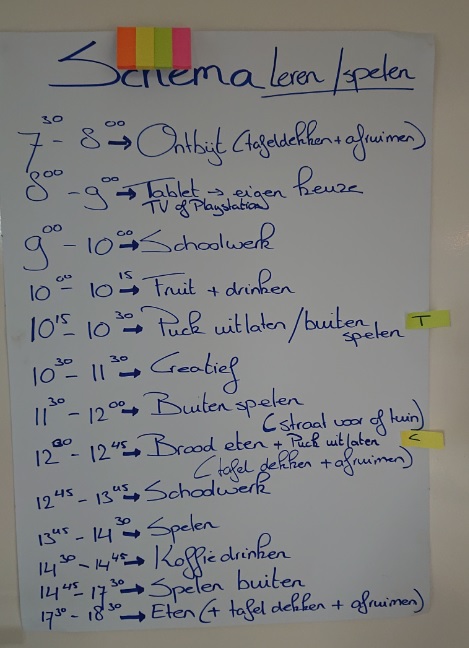 Schema leren/spelen
7³⁰ - 8⁰⁰ → Ontbijt (tafeldekken + afruimen)
8⁰⁰ - 9⁰⁰ → Tablet → eigen keuze
TV of Playstation
9⁰⁰ - 10⁰⁰ → Schoolwerk
10⁰⁰ - 10¹⁵ → Fruit + drinken
10¹⁵ - 10³⁰ → Puck uitlaten / buiten
spelen T
10³⁰ - 11³⁰ → Creatief
11³⁰ - 12⁰⁰ → Buiten spelen
(straat voor of tuin)
12⁰⁰ - 12⁴⁵ → Brood eten + Puck uitlaten <
(tafel dekken + afruimen)
12⁴⁵ - 13⁴⁵ → Schoolwerk
13⁴⁵ - 14³⁰ → Spelen
14³⁰ - 14⁴⁵ → Koffie drinken
14⁴⁵ - 17³⁰ → Spelen buiten
17³⁰ - 18³⁰ → Eten (+ tafel dekken + afruimen)